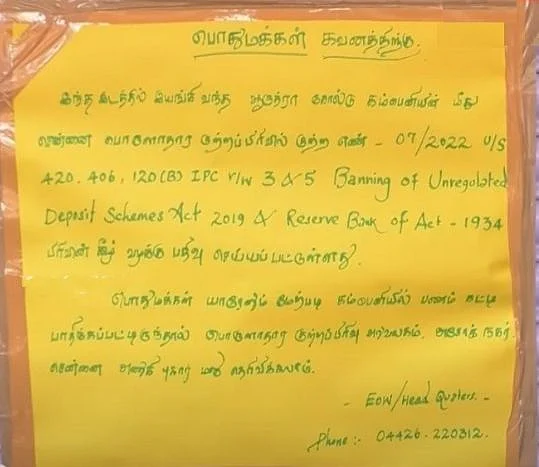 பொதுமக்கள் கவனத்திற்கு.
இந்த இடத்தில் இயங்கி வந்த ஆருத்ரா கோல்டு கம்பெனியின் மீது
சென்னை பொருளாதார குற்றப்பிரிவில் குற்ற எண் - 07/2022 U/S
420, 406, 120(B) IPC r/w 3 & 5 Banning of Unregulated
Deposit Schemes Act 2019 & Reserve Bank of Act - 1934
பிரிவின் கீழ் வழக்கு பதிவு செய்யப்பட்டுள்ளது.
பொதுமக்கள் யாரேனும் மேற்படி கம்பெனியில் பணம் கட்டி
பாதிக்கப்பட்டிருந்தால் பொருளாதார குற்றப்பிரிவு அலுவலகம், அசோக் நகர்,
சென்னை அணுகி புகார் மனு தெரிவிக்கலாம்.
- EOW/Head Quaters. -
Phone :- 04426.220312.